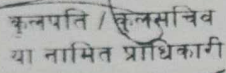 कुलपति / कुलसचिव
या नामित प्राधिकारी